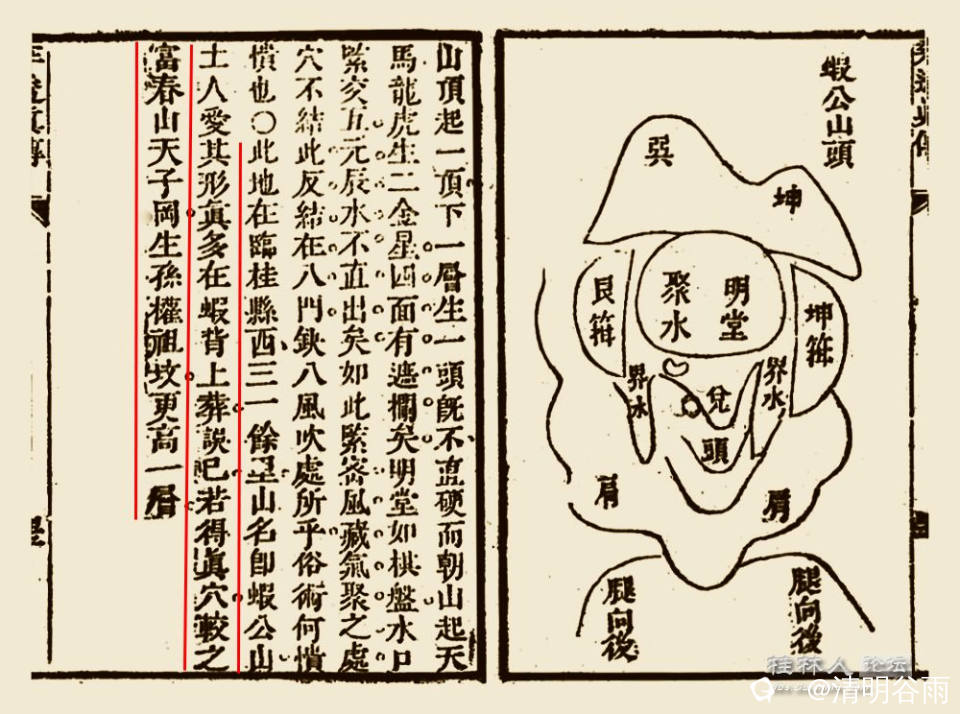 蝦公山頭
巽
坤
明堂
聚水
坤
艮
界水
兌
界水
頭
肩
肩
腿向後
腿向後
山頂起一頂下一層生一頭旣不直硬而朝山起天
馬龍虎生二金星四面有遮攔矣明堂如棋盤水口
緊交五元辰水不直出矣如此緊密風藏氣聚之處
穴不結此反結在八門缺八風吹處所乎俗術何憒
憒也〇此地在臨桂縣西三一餘里山名卽蝦公山
土人愛其形眞多在蝦背上葬説已若得眞穴較之
富春山天子岡生孫權祖坟更高一層
桂林人 论坛
@清明谷雨